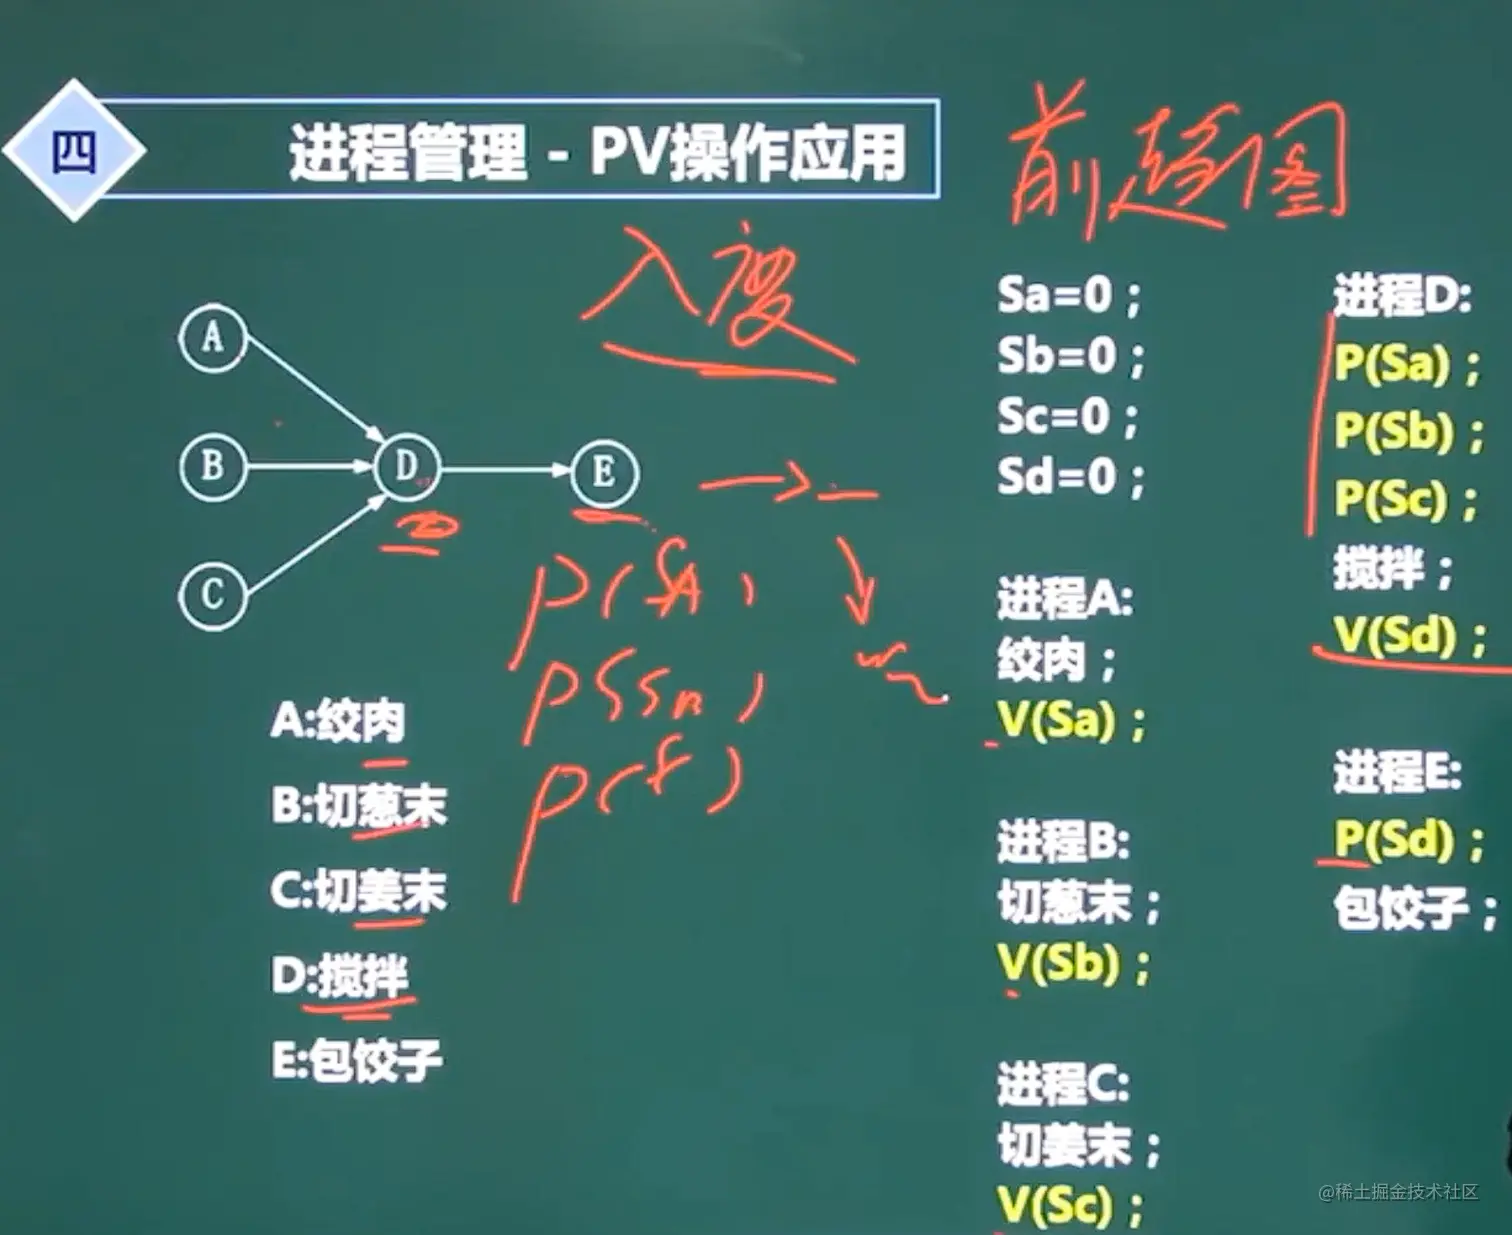 四
进程管理 - PV操作应用
前趋图
入度
A
B
C
D
E
P(SA)
A:绞肉
B:切葱末
C:切姜末
D:搅拌
E:包饺子
Sa=0；
Sb=0；
Sc=0；
Sd=0；
进程A:
绞肉；
V(Sa)；
进程B:
切葱末；
V(Sb)；
进程C:
切姜末；
V(Sc)；
进程D:
P(Sa)；
P(Sb)；
P(Sc)；
搅拌；
V(Sd)；
进程E:
P(Sd)；
包饺子；
@稀土掘金技术社区